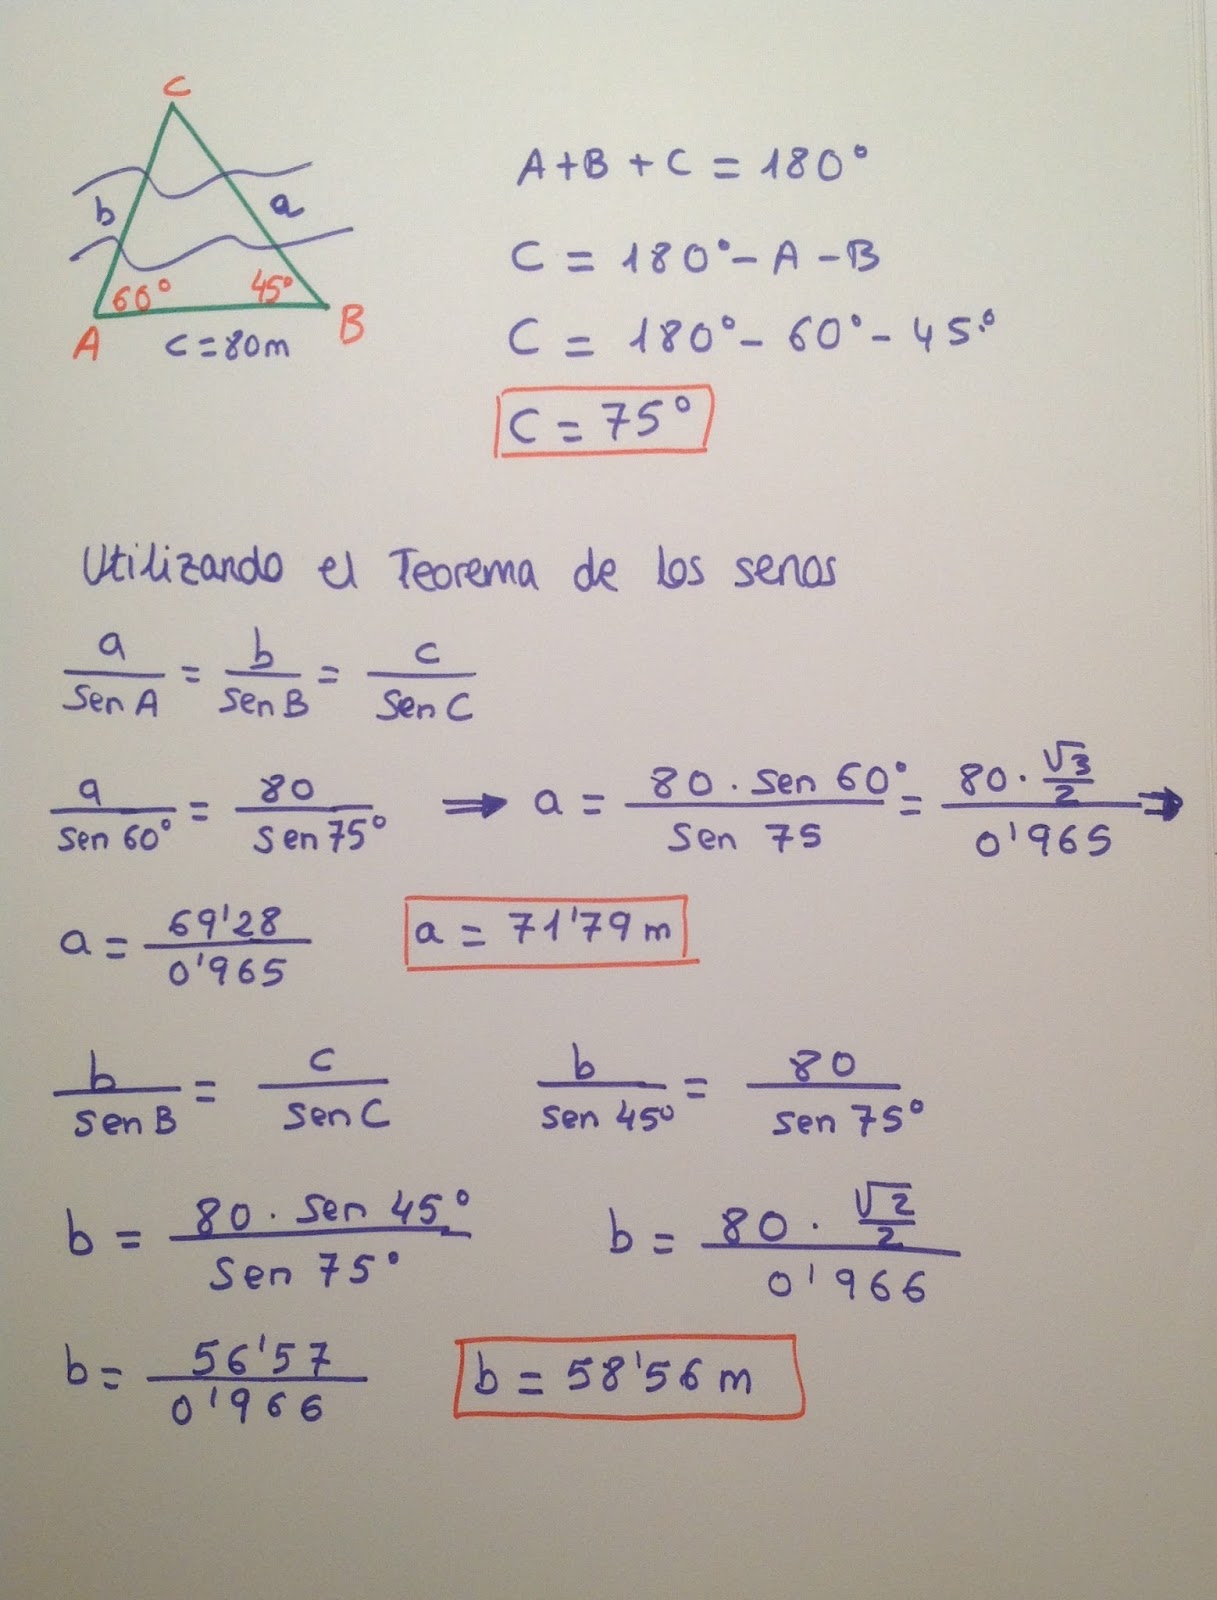 C
b a
60° 45°
A B
c = 80m
A + B + C = 180°
C = 180° - A - B
C = 180° - 60° - 45°
C = 75°
Utilizando el Teorema de los senos
a/sen A = b/sen B = c/sen C
a/sen 60° = 80/sen 75° ⇒ a = 80 · sen 60°/sen 75 = 80 · √3/2/0'965 ⇒
a = 69'28/0'965 a = 71'79 m
b/sen B = c/sen C b/sen 45° = 80/sen 75°
b = 80 · sen 45°/sen 75° b = 80 · √2/2/0'966
b = 56'57/0'966 b = 58'56 m